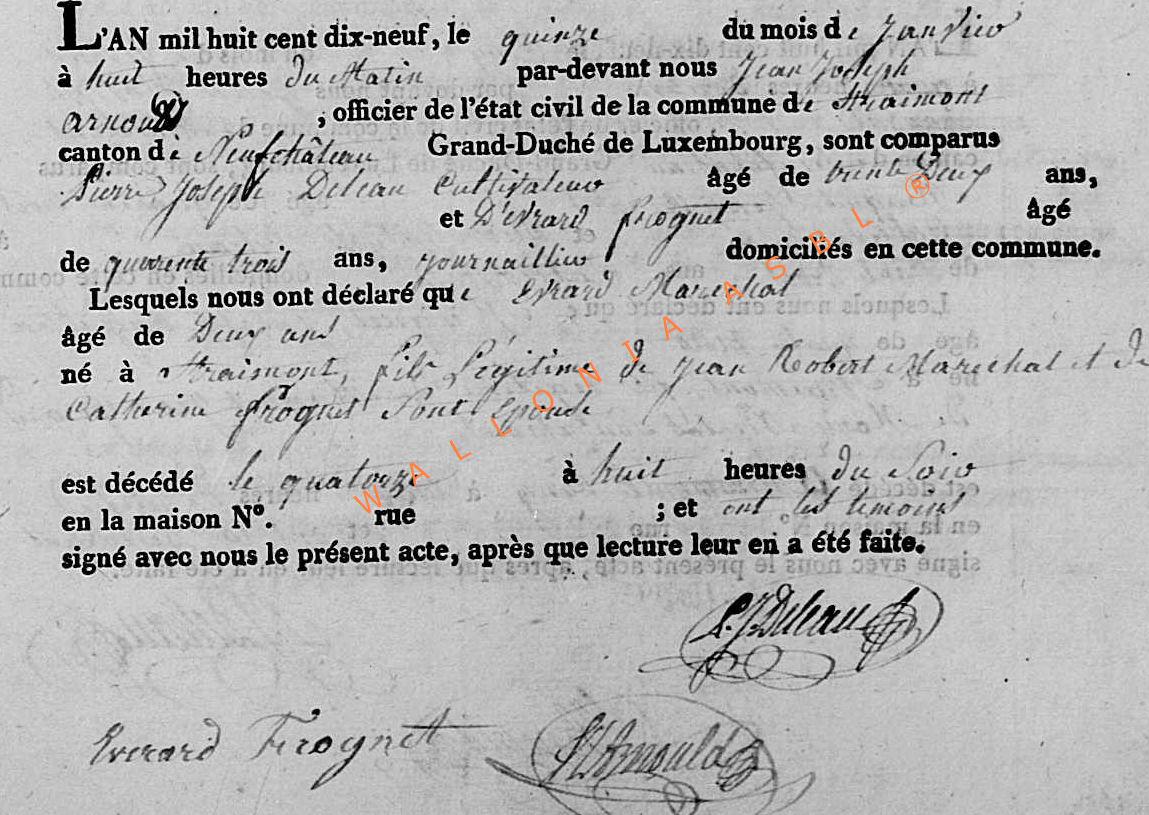 L'AN mil huit cent dix-neuf, le quinze du mois de Janvier
à huit heures du Matin par-devant nous Jean Joseph
arnould ; officier de l'état civil de la commune de Straimont
canton de Neufchâteau Grand-Duché de Luxembourg, sont comparus
Pierre Joseph Deleau Cultivateur âgé de trente Deux ans,
et D'evrard frognet âgé
de quarente trois ans, journaillier domiciliés en cette commune.
Lesquels nous ont déclaré que Evrard Marechal
âgé de Deux ans
né à Straimont, fils Légitime de Jean Robert Marechal et de
Catherine frognet Sont Epouse
est décédé le quatorze à huit heures du Soir
en la maison N°. rue ; et ont les temoins
signé avec nous le présent acte, après que lecture leur en a été faite.
P. J. Deleau
Everard Frognet JJ Arnould
WALLONIA ASBL ®